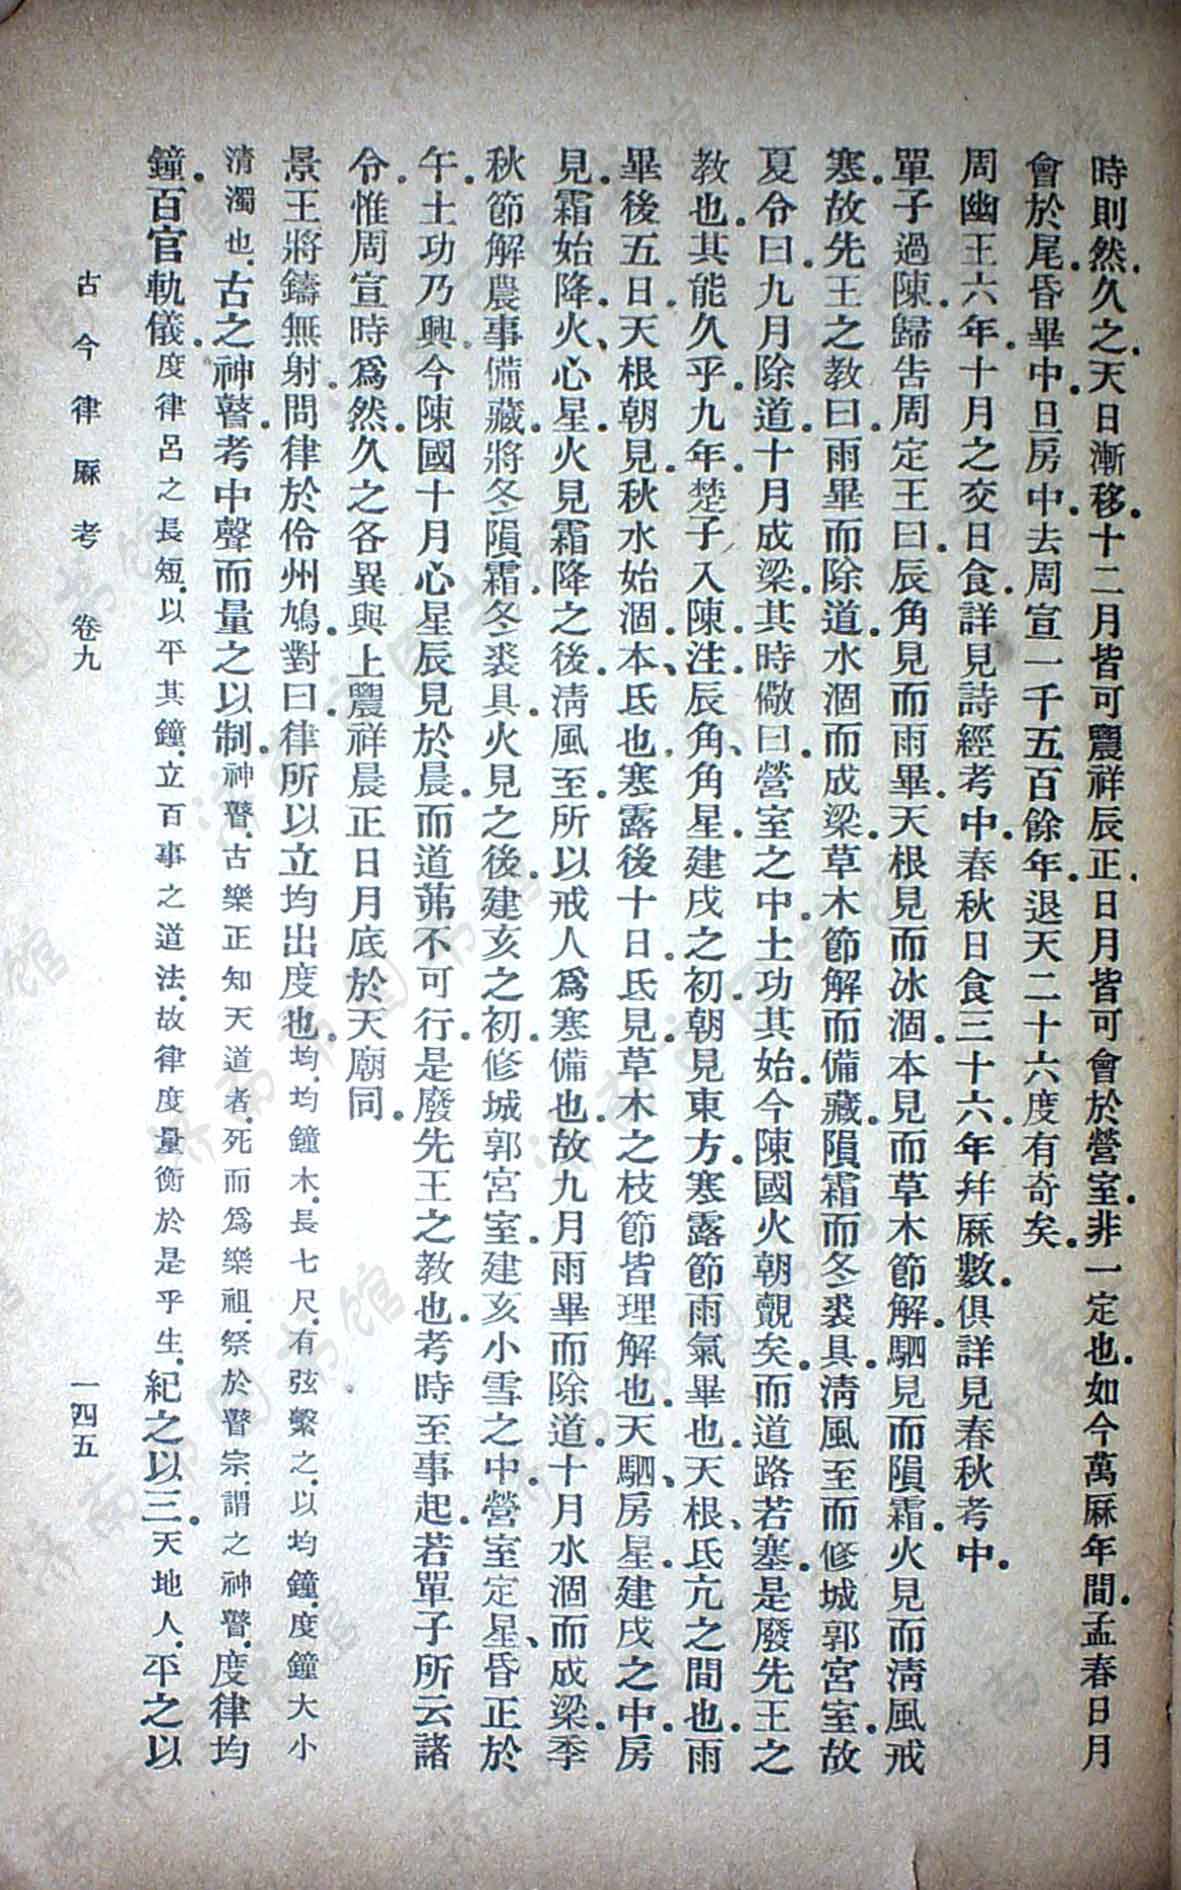 時則然久之.天日漸移.十二月皆可農祥辰正.日月皆可會於營室.非一定也.如今萬厤年間.孟春日月
會於尾.昏畢中.旦房中.去周宣一千五百餘年.退天二十六度有奇矣.
周幽王六年.十月之交日食.詳見詩經考中.春秋日食三十六年幷厤數.俱詳見春秋考中.
單子過陳.歸告周定王曰.辰角見而雨畢.天根見而水涸.本見而草木節解.駟見而隕霜.火見而淸風戒
寒.故先王之教曰.雨畢而除道.水涸而成梁.草木節解而備藏.隕霜而冬裘具.淸風至而修城郭宮室.故
夏令曰.九月除道.十月成梁.其時儆曰.營室之中.土功其始.今陳國火朝覿矣.而道路若塞.是廢先王之
教也.其能久乎.九年.楚子入陳.注.辰角、角星.建戌之初.朝見東方.寒露節雨氣畢也.天根、氐亢之間也.雨
畢後五日.天根朝見.秋水始涸.本、氐也.寒露後十日.氐見.草木之枝節皆理解也.天駟、房星.建戌之中.房
見.霜始降.火、心星.火見霜降之後.淸風至.所以戒人爲寒備也.故九月雨畢而除道.十月水涸而成梁.季
秋節解.農事備藏.將冬隕霜.冬裘具.火見之後.建亥之初.修城郭宮室.建亥小雪之中.營室定星、昏正於
午.土功乃興.今陳國十月心星辰見於晨.而道茀不可行.是廢先王之教也.考時至事起.若單子所云諸
令.惟周宣時爲然.久之各異.與上農祥晨正日月底於天廟同.
景王將鑄無射.問律於伶州鳩.對曰.律所以立均出度也.均.均鐘木.長七尺.有弦繫之.以均鐘.度鐘大小
清濁也.古之神瞽.考中聲而量之以制.神瞽.古樂正知天道者.死而爲樂祖.祭於瞽宗.謂之神瞽.度律均
鐘.百官軌儀.度律呂之長短.以平其鐘.立百事之道法.故律度量衡於是乎生.紀之以三.天地人.平之以
古今律厤考　卷九　一四五